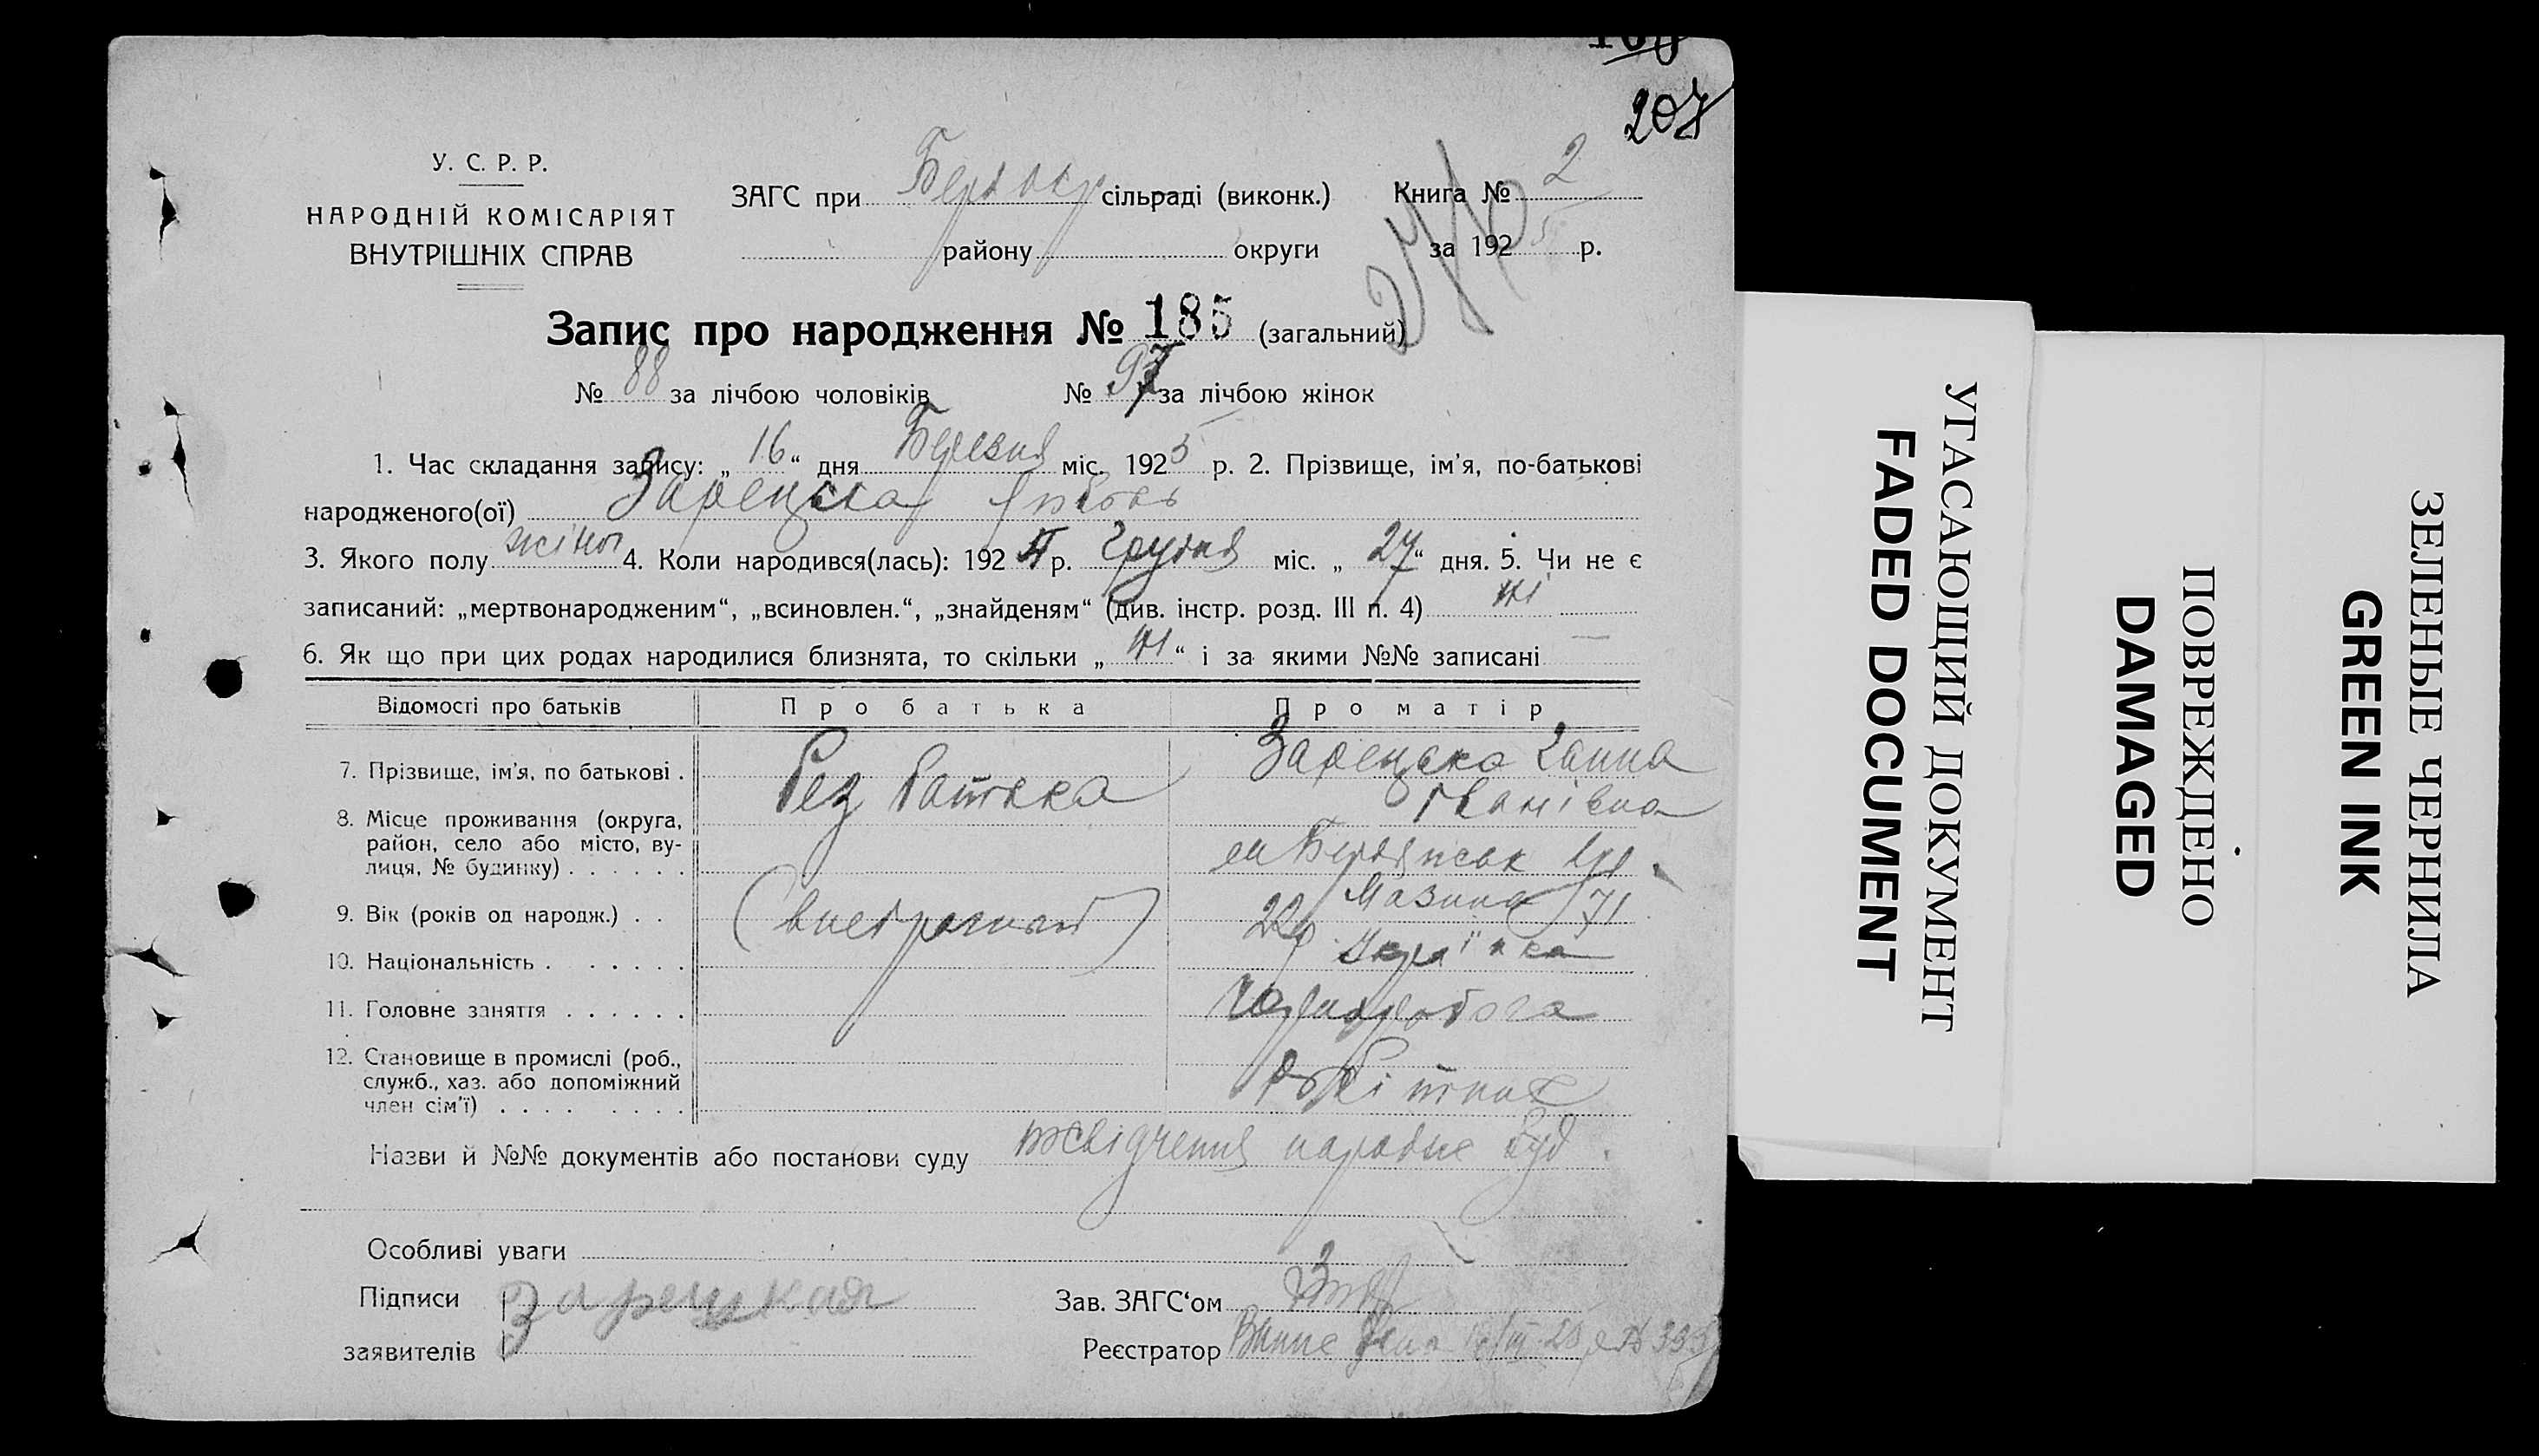 207
У. С. Р. Р.
НАРОДНІЙ КОМІСАРІЯТ
ВНУТРІШНІХ СПРАВ
ЗАГС при сільраді (виконк.) Книга № 2
району округи за 1925 р.
Запис про народження № 185 (загальний)
№ 88 за лічбою чоловіків № 97 за лічбою жінок
1. Час складання запису: „16“ дня Березня міс. 1925 р. 2. Прізвище, ім'я, по-батькові
народженого(ої) Зарецька Любовь
3. Якого полу жіноч 4. Коли народився(лась): 1924 р. Грудня міс. „27“ дня. 5. Чи не є
записаний: „мертвонародженим“, „всиновлен.“, „знайденям“ (див. інстр. розд. III п. 4) ні
6. Як що при цих родах народилися близнята, то скільки „ні“ і за якими №№ записані —
Відомості про батьків Про батька Про матір
7. Прізвище, ім'я, по батькові . Без батька Зарецька Ганна
Іванівна
8. Місце проживання (округа,
район, село або місто, ву-
лиця, № будинку) . . . . . . Бердянськ вул.
Мазина 71
9. Вік (років од народж.) . . 22
10. Національність . . . . . . Украінка
11. Головне заняття . . . . . . Чорнороботга
12. Становище в промислі (роб.,
служб., хаз. або допоміжний
член сім'ї) . . . . . . . . робітниц
Назви й №№ документів або постанови суду посвідчення нарядне
Особливі уваги
Підписи Зарецкая Зав. ЗАГС'ом
заявителів Реєстратор
УГАСАЮЩИЙ ДОКУМЕНТ
FADED DOCUMENT
ПОВРЕЖДЕНО
DAMAGED
ЗЕЛЕНЫЕ ЧЕРНИЛА
GREEN INK